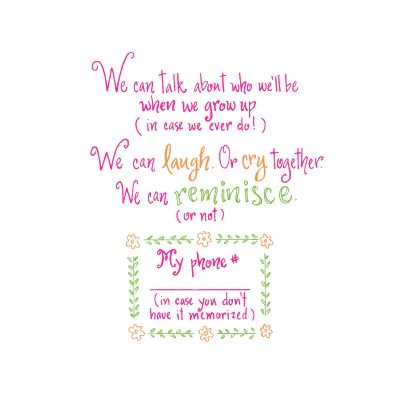 We can talk about who we'll be
when we grow up
(in case we ever do!)
We can laugh. Or cry together.
We can reminisce.
(or not)
My phone #
(in case you don't
have it memorized)